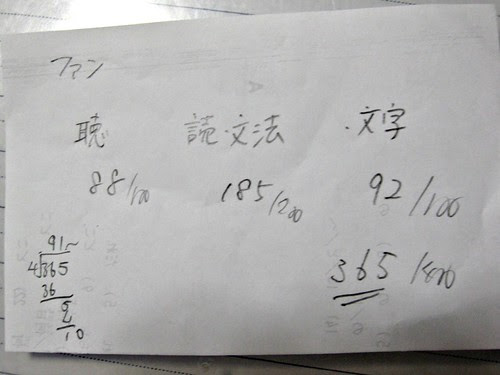 ファン
聴 読・文法 ・文字
88/100 185/200 92/100
365/400
91~
4)365
36
5
10